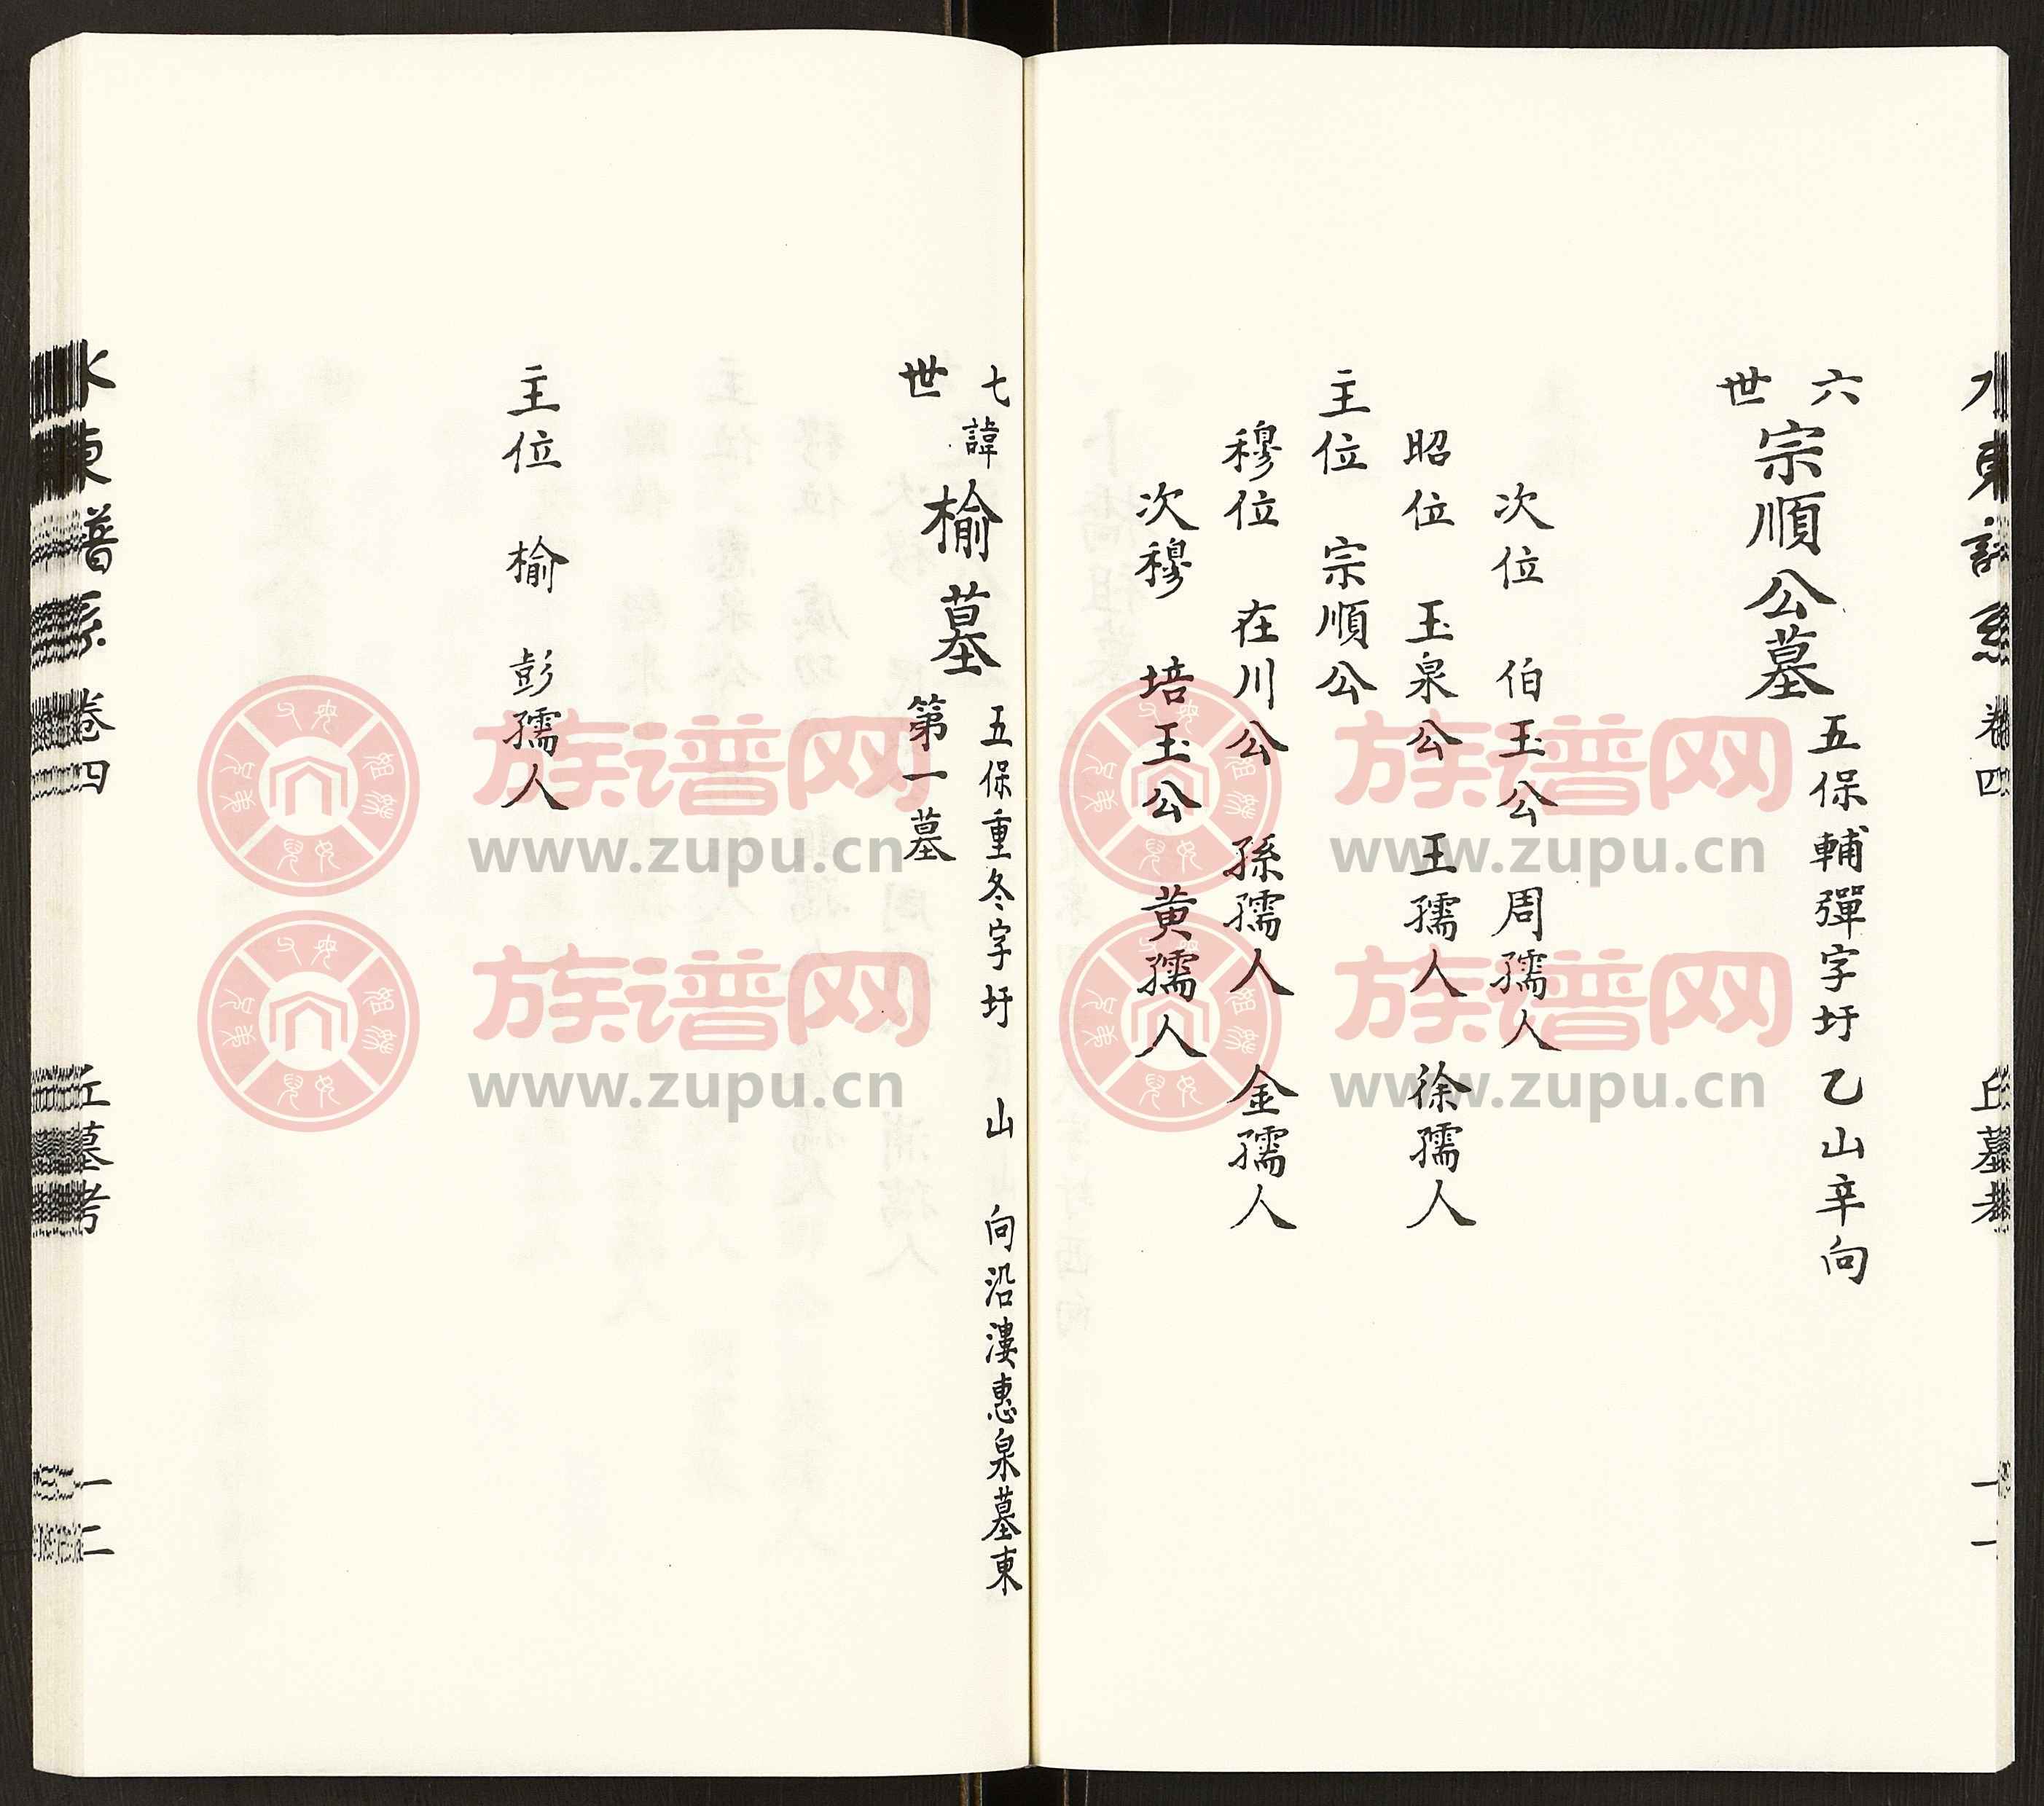 水東譜系 卷四 丘墓考 一一
六世 宗順公墓 五保輔彈字圩乙山辛向
次位 伯玉公 周孺人
昭位 玉泉公 王孺人 徐孺人
主位 宗順公
穆位 在川公 孫孺人 金孺人
次穆 培玉公 黄孺人
七世 諱榆墓 五保重冬字圩 山 向沿漊惠泉墓東
第一墓
主位 榆 彭孺人
水東譜系 卷四 丘墓考 一二
族谱网
www.zupu.cn
族谱网
www.zupu.cn
族谱网
www.zupu.cn
族谱网
www.zupu.cn